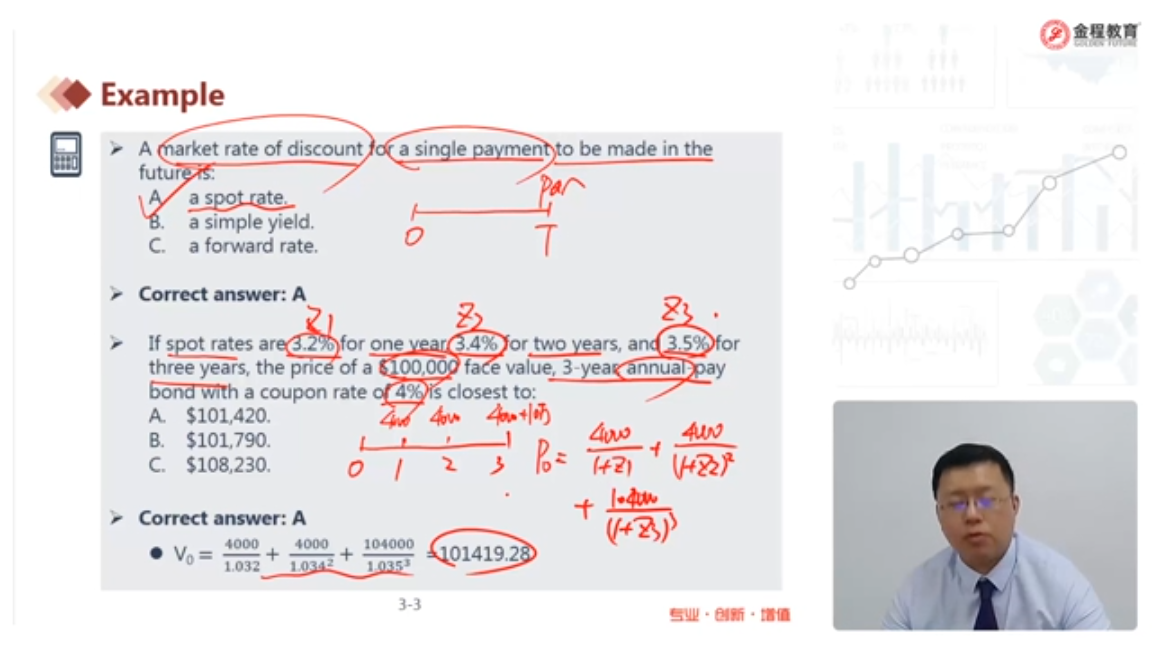 金程教育
GOLDEN FUTURE
Example
A market rate of discount for a single payment to be made in the
future is:
par
A. a spot rate.
B. a simple yield.
0 T
C. a forward rate.
Correct answer: A
Z1 Z2 Z3
If spot rates are 3.2% for one year, 3.4% for two years, and 3.5% for
three years, the price of a $100,000 face value, 3-year, annual-pay
bond with a coupon rate of 4% is closest to:
A. $101,420.
4000 4000 4000+10^5
B. $101,790.
C. $108,230.
0 1 2 3
P0 = 4000/(1+Z1) + 4000/(1+Z2)^2
+ 104000/(1+Z3)^3
Correct answer: A
V₀ = 4000/1.032 + 4000/1.034² + 104000/1.035³ =101419.28
3-3
专业·创新·增值